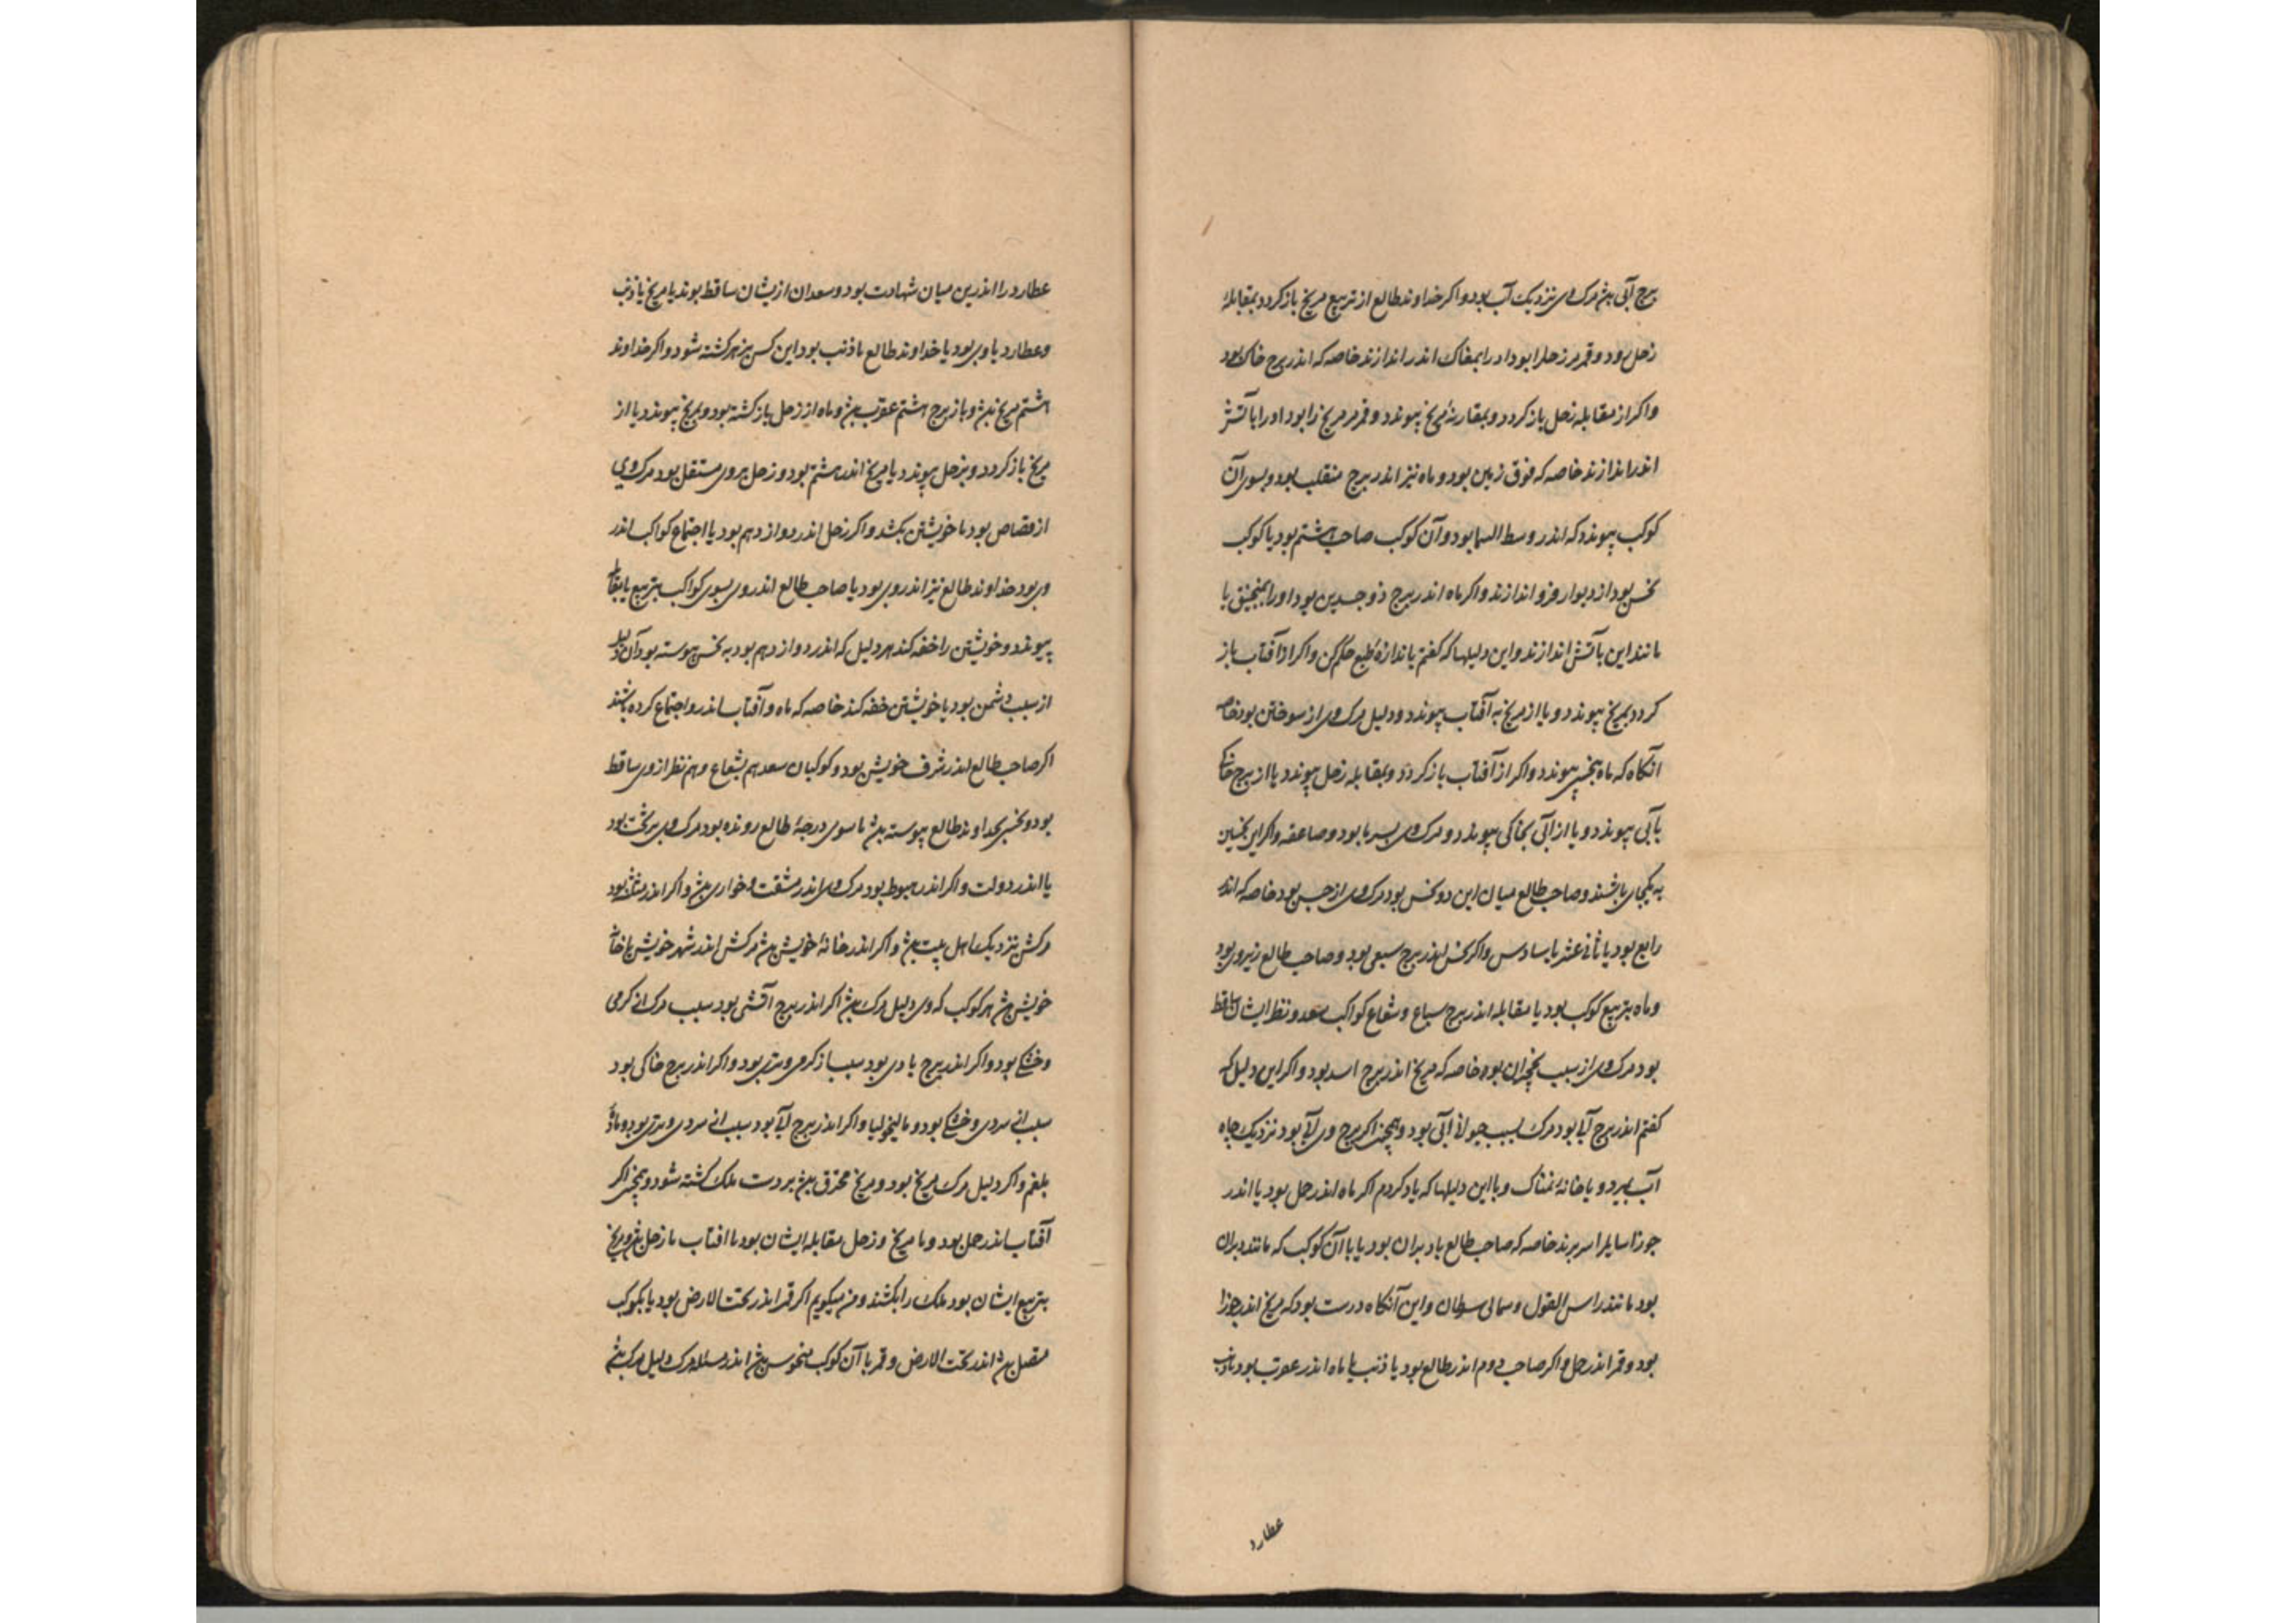 برج آبی بیش مرک وی نزدیک آب بود و اکر خداوند طالع از تربیع مریخ باز کردد بمقابله
زحل رود و قمر مر زحل را بود او را بمغاک اندر اندازند خاصه که اندر برج خاکی بود
واکر از مقابله زحل باز کردد و بمقارنهٔ مریخ پیوندد و قمر مر مریخ را بود او را بآتش
اندر اندازند خاصه که فوق زمین بود و ماه نیز اندر برج منقلب بود و بسوی آن
کوکب پیوندد که اندر وسط السما بود و آن کوکب صاحب هشتم بود یا کوکب
نحس بود از دیوار فرو اندازند و اکر ماه اندر برج ذوجسدین بود او را بمنجنیق با
مانند این بآتش اندازند و این دلیلها که کفتم باندازهٔ طبع حکم کن و اکر از آفتاب باز
کردد بمریخ پیوندد و یا از مریخ به آفتاب پیوندد و دلیل مرک وی از سوختن بود خاصه
آنکاه که ماه بنحس پیوندد و اکر از آفتاب باز کردد و بمقابله زحل پیوندد یا از برج خاکی
بآبی پیوندد و یا از آبی بخاکی پیوندد و مرک وی بسرما بود و صاعقه و اکر این نحسین
به یکجای باشند و صاحب طالع میان این دو نحس بود مرک وی از حبس بود خاصه که اندر
رابع بود یا ثانی عشر یا سادس و اکر نحس اندر برج سبعی بود و صاحب طالع زیر وی بود
و ماه بتربیع کوکب بود یا مقابله اندر برج سباع و شعاع کواکب سعد و نظر ایشان ساقط
بود مرک وی از سبب نخچیران بود خاصه که مریخ اندر برج اسد بود و اکر این دلیل که
کفتم اندر برج آبی بود مرک بسبب حیوانی آبی بود و همچنین اکر برج وی آبی بود نزدیک چاه
آب بمیرد و یا خانهٔ نمناک و با این دلیلها که یاد کردم اکر ماه اندر حمل بود یا اندر
جوزا سایلرا سر برند خاصه که صاحب طالع با دبران بود یا با آن کوکب که مانند دبران
بود مانند راس الغول و سمالی سرطان و این آنکاه درست بود که مریخ اندر جوزا
بود و قمر اندر حمل و اکر صاحب دوم اندر طالع بود یا ذنب یا ماه اندر عقرب بود با ذنب
عطارد
عطارد را اندرین میان شهادت بود و سعدان ازیشان ساقط بوند یا مریخ با ذنب
وعطارد با وی بود یا خداوند طالع با ذنب بود این کس بزهر کشته شود و اکر خداوند
هشتم مریخ بیش و یا زبرج هشتم عقرب بیش و ماه از زحل باز کشته بود و بمریخ پیوندد یا از
مریخ باز کردد و بزحل پیوندد یا مریخ اندر هشتم بود و زحل بروی مستقل بود مرک وی
از قصاص بود یا خویشتن بکشد و اکر زحل اندر دوازدهم بود یا اجتماع کواکب اندر
وی بود خداوند طالع نیز اندر وی بود یا صاحب طالع اندر وی بسوی کواکب بتربیع یا بمقابله
پیوندد و خویشتن را خفه کند هر دلیل که اندر دوازدهم بود به نحس پیوسته بود آن دلیل
از سبب دشمن بود یا خویشتن خفه کند خاصه که ماه و آفتاب اندر و اجتماع کرده باشند
اکر صاحب طالع اندر شرف خویش بود و کوکبان سعد هم بشعاع و هم نظر از وی ساقط
بود و نحس بخداوند طالع پیوسته بیش تا سوی درجهٔ طالع رونده بود مرک وی بر تخت بود
یا اندر دولت و اکر اندر هبوط بود مرک وی اندر مشقت و خواری بیش و اکر اندر مثلثه بود
مرکش نزدیک اهل بیت بیش و اکر اندر خانهٔ خویش بیش مرکش اندر شهر خویش یا خانهٔ
خویش بیش هر کوکب که وی دلیل مرک بیش اکر اندر برج آتشی بود سبب مرک از کرمی
و خشکی بود و اکر اندر برج بادی بود سبب از کرمی و تری بود و اکر اندر برج خاکی بود
سبب از سردی و خشکی بود و مالیخولیا و اکر اندر برج آبی بود سبب از سردی و تری بود و مادهٔ
بلغم و اکر دلیل مرک مریخ بود و مریخ محترق بیش بر دست ملک کشته شود و همچنین اکر
آفتاب اندر حمل بود و ما مریخ و زحل مقابله ایشان بود یا افتاب با زحل بیش و مریخ
بتربیع ایشان بود ملک را بکشند و من میکویم اکر قمر اندر تحت الارض بود یا بکوکب
متصل بیش اندر تحت الارض و قمر با آن کوکب منحوس بیش اندر مسئله مرک دلیل مرک بیش